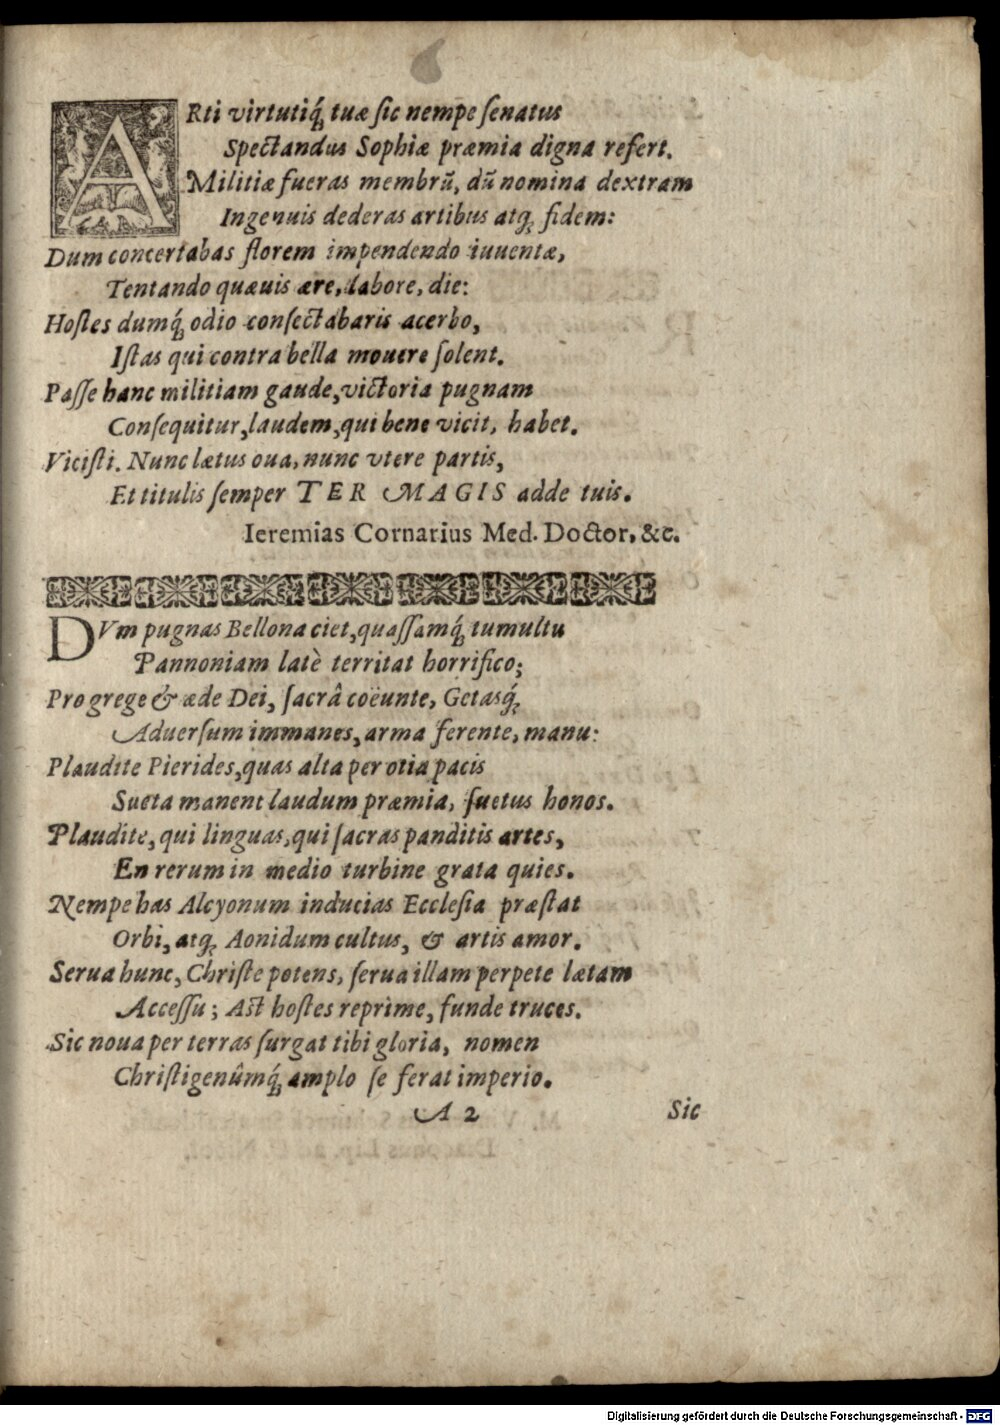 ARti virtutiq́ꝫ tuæ ſic nempe ſenatus
Spectandus Sophiæ præmia digna refert.
Militiæ fueras membrũ, dũ nomina dextram
Ingenuis dederas artibus atqꝫ fidem:
Dum concertabas florem impendendo iuuentæ,
Tentando quæuis ære, labore, die:
Hoſtes dumq́ꝫ odio conſectabaris acerbo,
Iſtas qui contra bella mouere ſolent.
Paſſe hanc militiam gaude, victoria pugnam
Conſequitur, laudem, qui bene vicit, habet.
Viciſti. Nunc lætus oua, nunc vtere partis,
Et titulis ſemper TER MAGIS adde tuis.
Ieremias Cornarius Med. Doctor, &c.
DVm pugnas Bellona ciet, quaſſamq́ꝫ tumultu
Pannoniam latè territat horrifico;
Pro grege & æde Dei, ſacrâ coëunte, Getasq́ꝫ
Aduerſum immanes, arma ferente, manu:
Plaudite Pierides, quas alta per otia pacis
Sueta manent laudum præmia, ſuetus honos.
Plaudite, qui linguas, qui ſacras panditis artes,
En rerum in medio turbine grata quies.
Nempe has Alcyonum inducias Eccleſia præſtat
Orbi, atqꝫ Aonidum cultus, & artis amor.
Serua hunc, Chriſte potens, ſerua illam perpete lætam
Acceſſu; Aſt hoſtes reprime, funde truces.
Sic noua per terras ſurgat tibi gloria, nomen
Chriſtigenûmq́ꝫ amplo ſe ferat imperio.
A 2 Sic
Digitalisierung gefördert durch die Deutsche Forschungsgemeinschaft - DFG